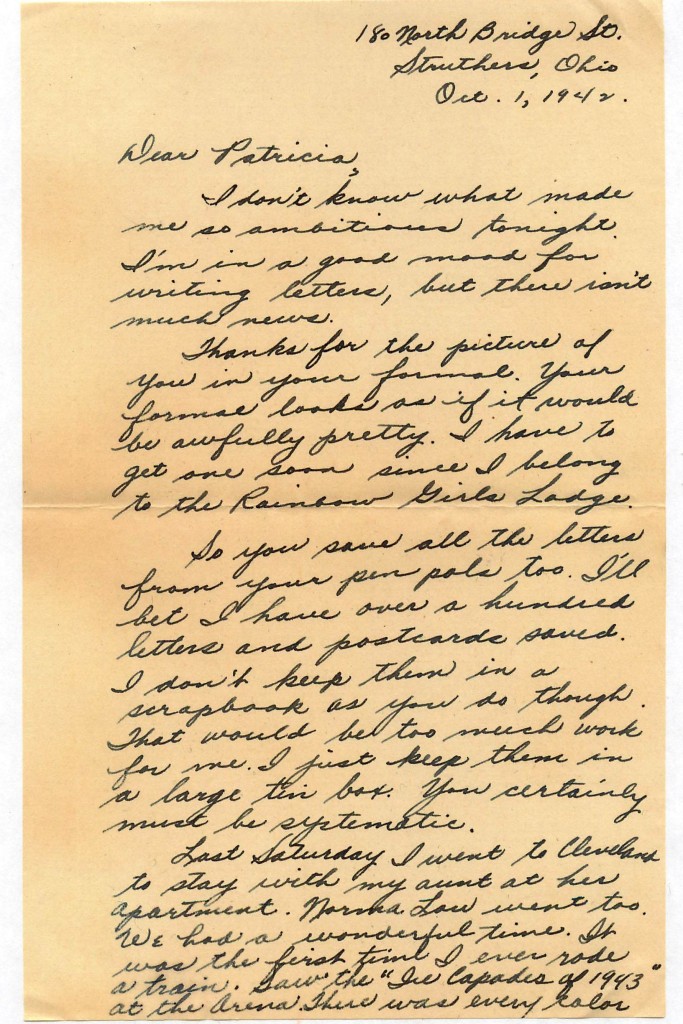 180 North Bridge St.
Struthers, Ohio
Oct. 1, 1942.
Dear Patricia,
I don't know what made
me so ambitious tonight.
I'm in a good mood for
writing letters, but there isn't
much news.
Thanks for the picture of
you in your formal. Your
formal looks as if it would
be awfully pretty. I have to
get one soon since I belong
to the Rainbow Girls Lodge.
So you save all the letters
from your pen pals too. I'll
bet I have over a hundred
letters and postcards saved.
I don't keep them in a
scrapbook as you do though.
That would be too much work
for me. I just keep them in
a large tin box. You certainly
must be systematic.
Last Saturday I went to Cleveland
to stay with my aunt at her
apartment. Norma Lou went too.
We had a wonderful time. It
was the first time I ever rode
a train. Saw the "Ice Capades of 1943"
at the Arena. There was every color